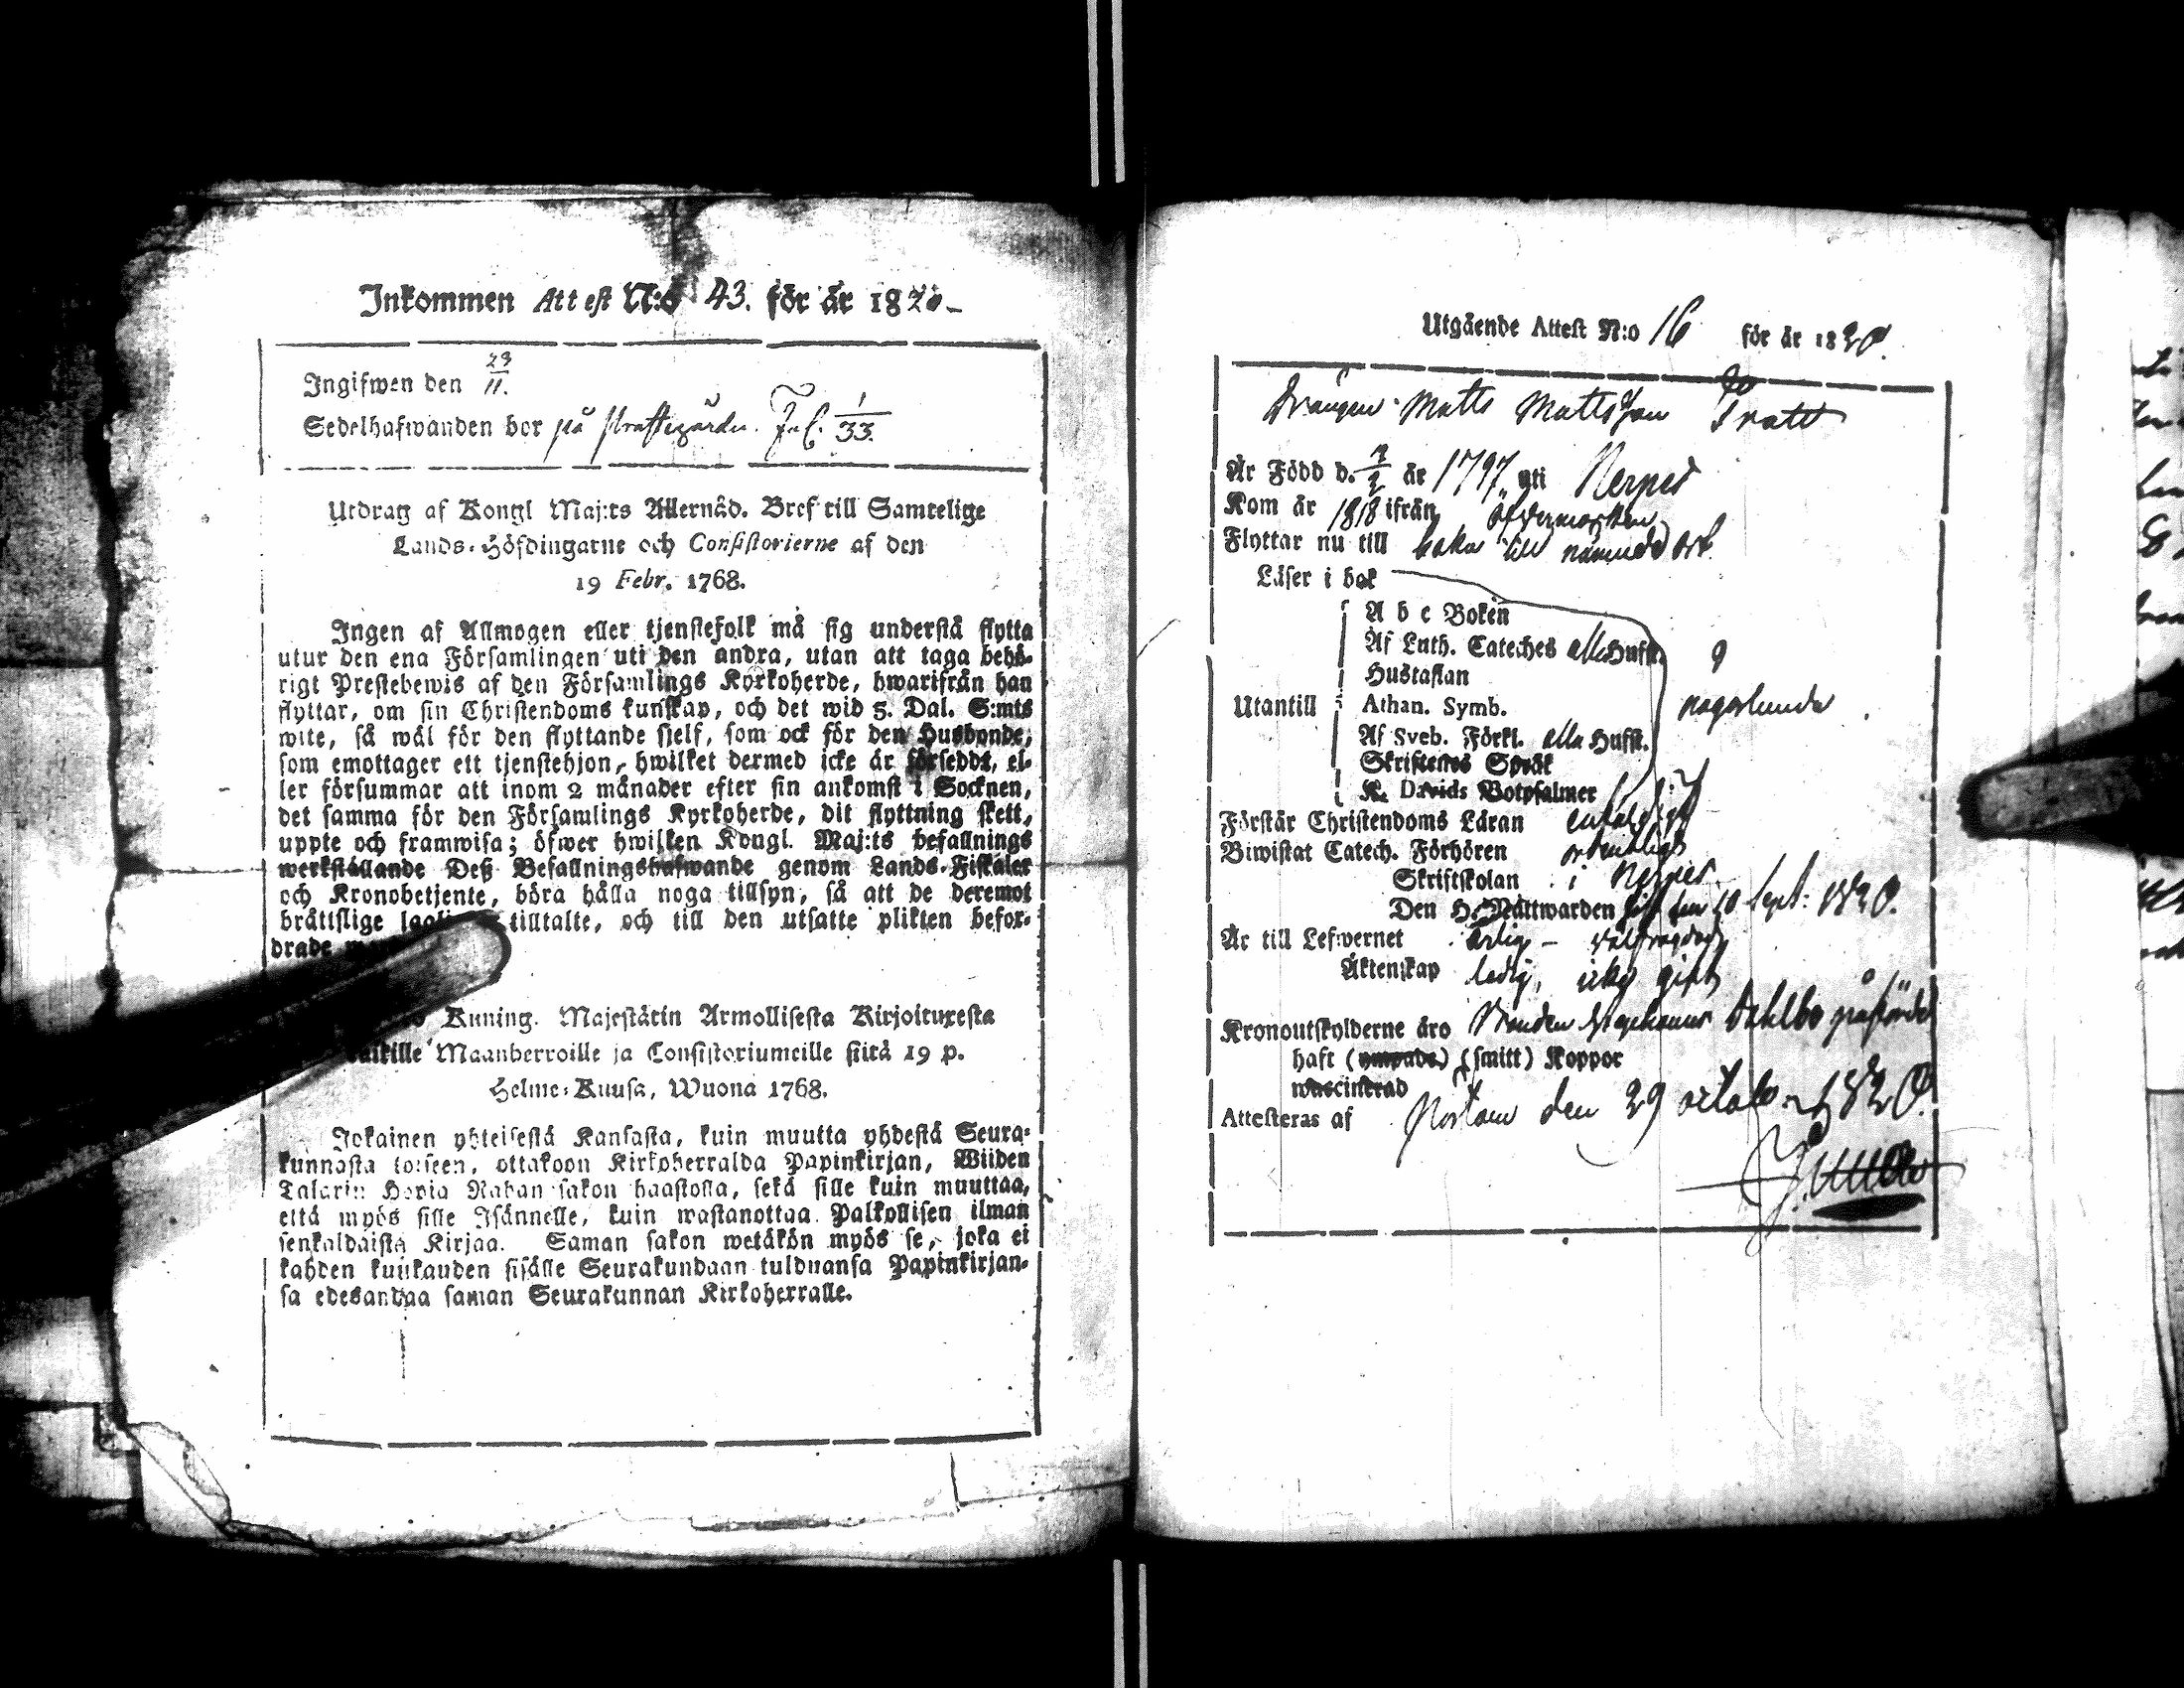 Inkommen Attest N:o 43. för år 1820
Ingifwen den 23/11.
Sedelhafwanden bor på Fol. 1/33.
Utdrag af Kongl Maj:ts Allernåd. Bref till Samtelige
Lands-Höfdingarne och Consistorierne af den
19 Febr. 1768.
Ingen af Allmogen eller tjenstefolk må sig understå flytta
utur den ena Församlingen uti den andra, utan att taga behö-
rigt Prestebewis af den Församlings Kyrkoherde, hwarifrån han
flyttar, om sin Christendoms kunskap, och det wid 5. Dal. S:mts
wite, så wäl för den flyttande sjelf, som ock för den Husbonde,
som emottager ett tjenstehjon, hwilket dermed icke är förseddt, el-
ler försummar att inom 2 månader efter sin ankomst i Socknen,
det samma för den Församlings Kyrkoherde, dit flyttning skett,
uppte och framwisa; öfwer hwilken Kongl. Maj:ts befallnings
werkställande Deß Befallningshafwande genom Lands-Fiskaler
och Kronobetjente, böra hålla noga tillsyn, så att de deremot
bråttslige tilltalte, och till den utsatte plikten befor-
drade
Kuning. Majestätin Armollisesta Kirjoituxesta
Maanherroille ja Consistoriumeille siitä 19 p.
Helme-Kuusa, Wuona 1768.
Jokainen yhteisestä Kansasta, kuin muutta yhdestä Seura-
kunnasta toiseen, ottakoon Kirkoherralda Papinkirjan, Wiiden
Talarin Hopia Rahan sakon haastolla, sekä sille kuin muuttaa,
että myös sille Isännelle, kuin wastanottaa Palkollisen ilman
senkaldaista Kirjaa. Saman sakon wetäkön myös se, joka ei
kahden kuukauden sisälle Seurakundaan tulduansa Papinkirjan-
sa edesandaa saman Seurakunnan Kirkoherralle.
Utgående Attest N:o 16 för år 1820.
Drängen Matts Mattsson
Är Född d. år 1797 uti Nerpes
Kom år 1818 ifrån Öfvermarken
Flyttar nu till baka till nämnde ort.
Läser i bok
A b c Boken
Af Luth. Cateches alla Hufst.
Hustaflan
Utantill Athan. Symb. någorlunda
Af Sveb. Förkl. alla Hufst.
Skriftenes Språk
K. Davids Botpsalmer
Förstår Christendoms Läran enfaldigt
Biwistat Catech. Förhören ordentligt
Skriftskolan i Nerpes
Den H. Nattwarden den 10 Sept: 1820.
Är till Lefwernet ärlig – välfrägdad
Äktenskap ledig, icke gift
Kronoutskylderne äro Bonden Dahlbo påförde
haft (ympade) (smitt) Koppor
waccinerad
Attesteras af den 29 october 1820.